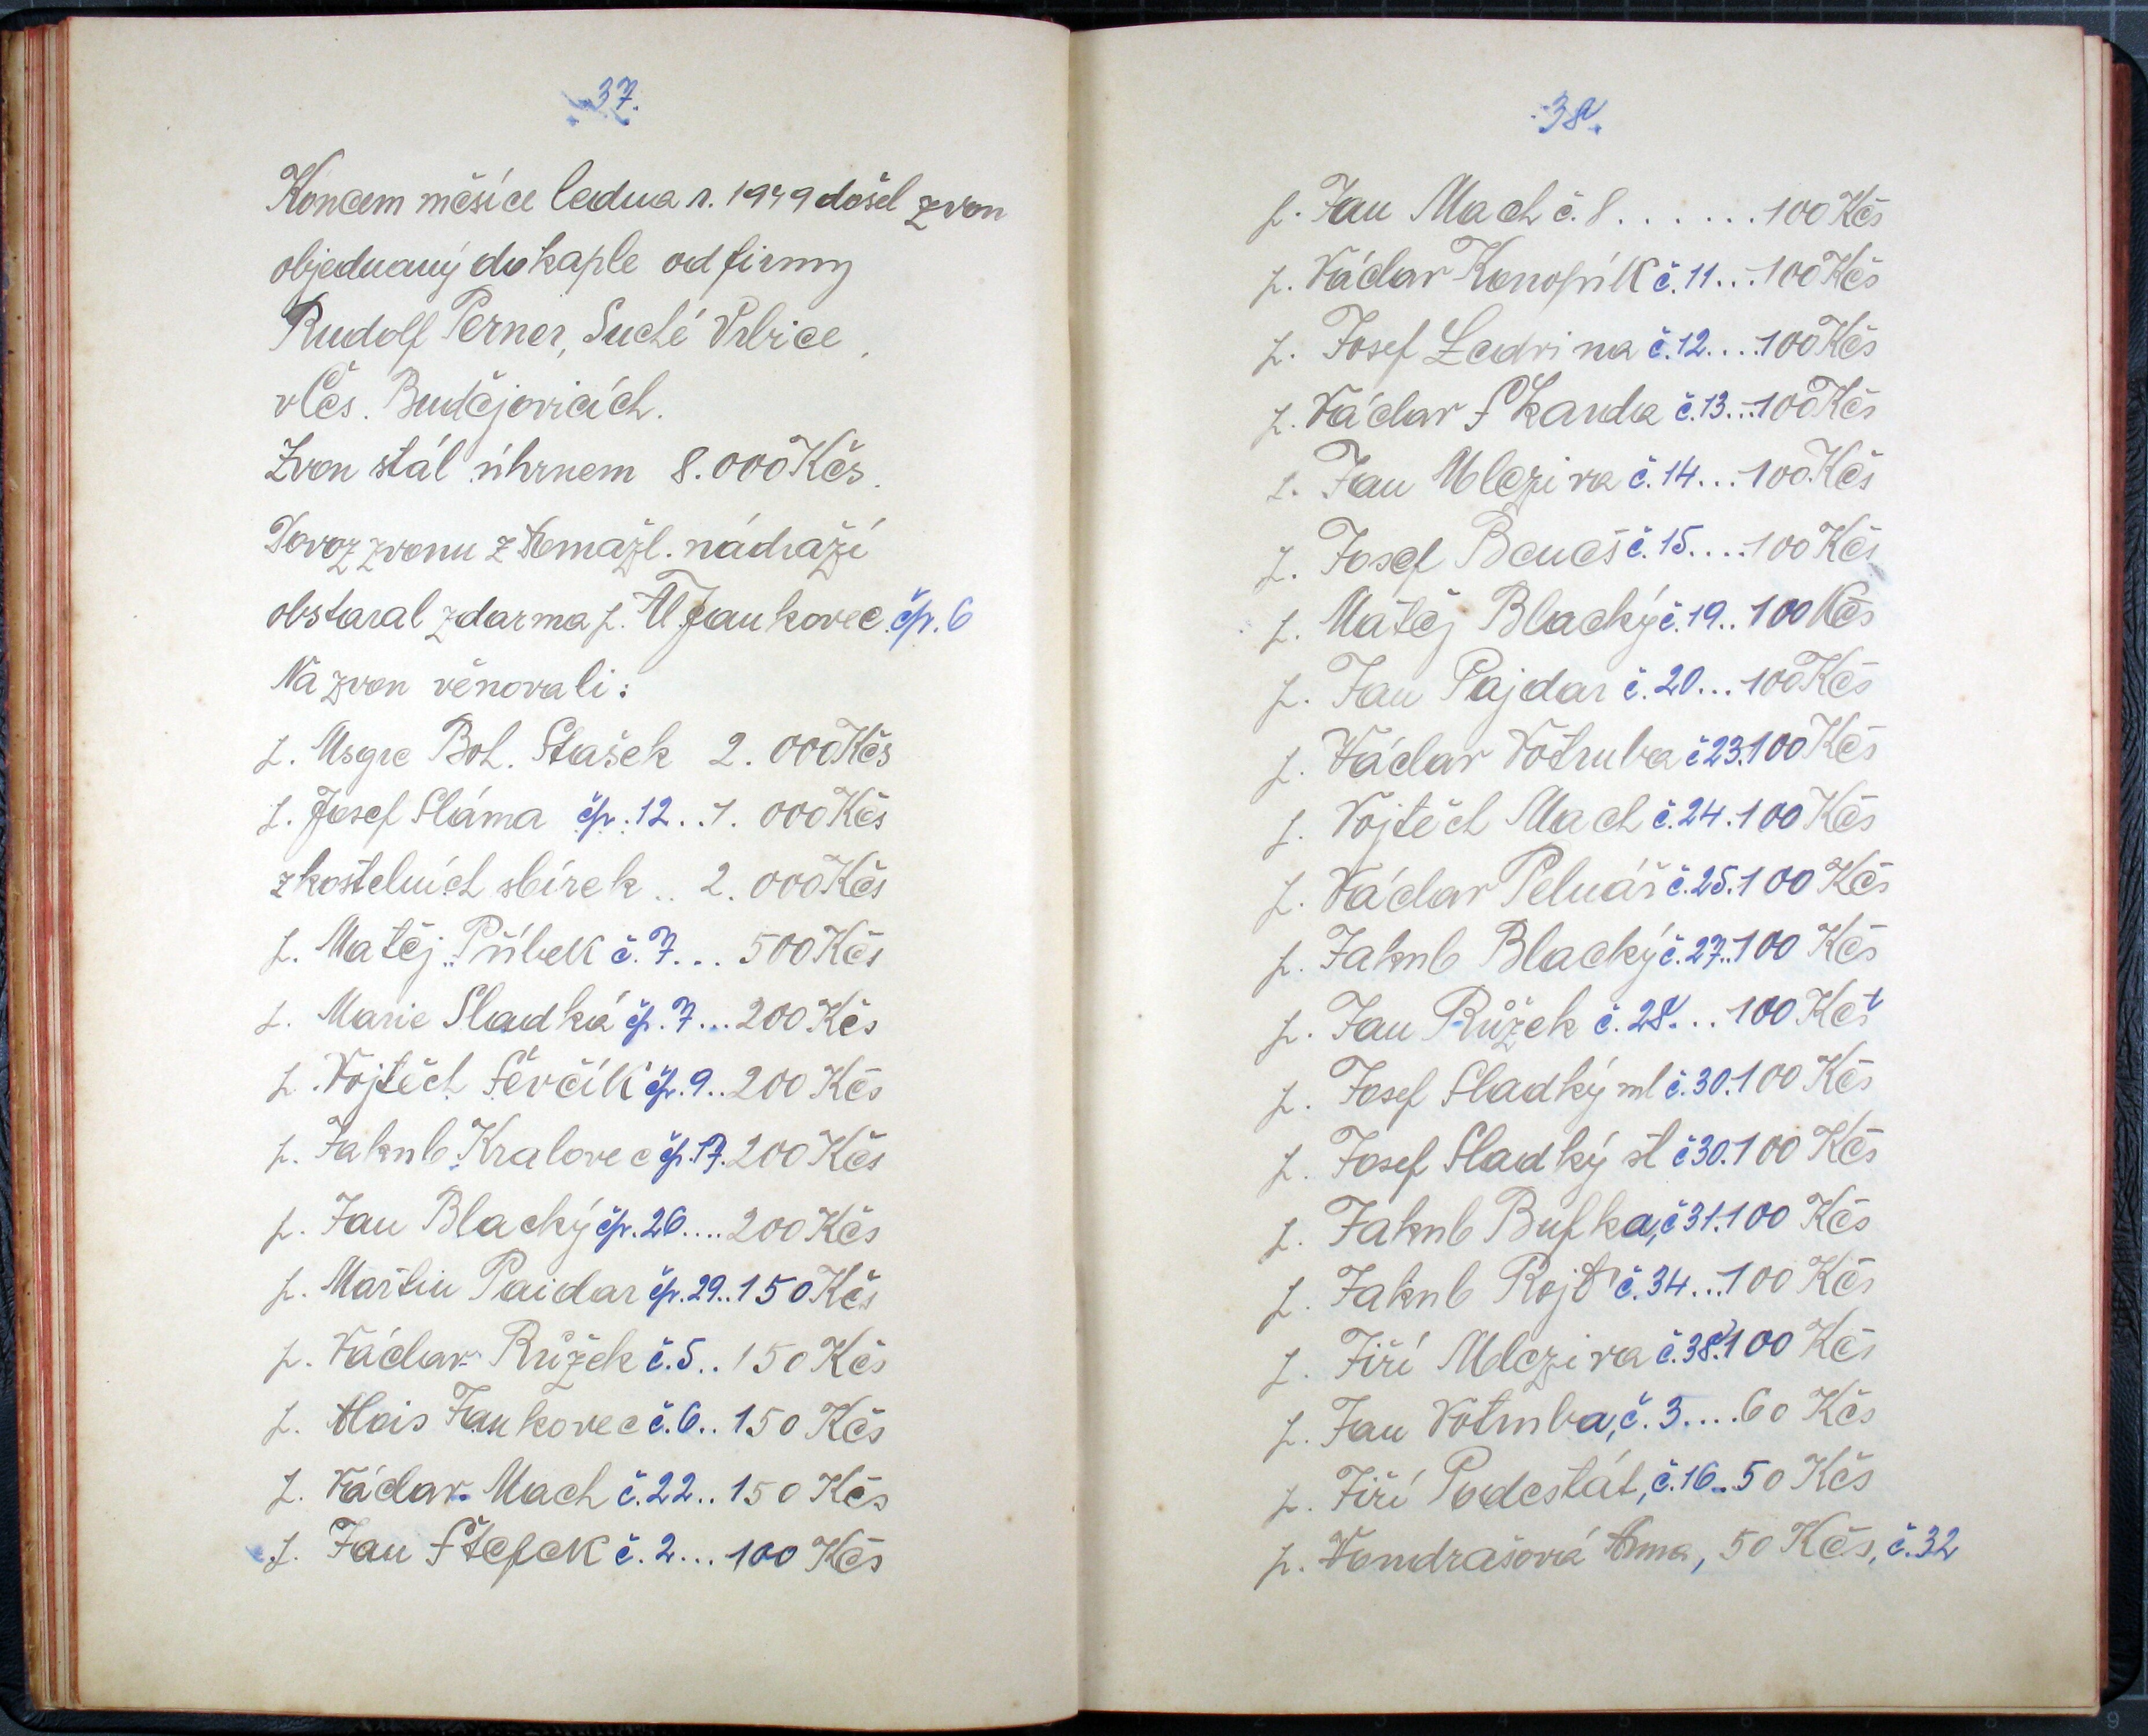 37.
Koncem měsíce ledna r. 1949 došel zvon
objednaný do kaple od firmy
Rudolf Perner, Suché Vrbice,
v Čes. Budějovicích.
Zvon stál úhrnem 8.000 Kčs.
Dovoz zvonu z Domažl. nádraží
obstaral zdarma p. Al. Jankovec čp. 6
Na zvon věnovali:
p. Msgre Boh. Stašek 2.000 Kčs
p. Josef Sláma čp. 12 .. 1.000 Kčs
z kostelních sbírek .. 2.000 Kčs
p. Matěj Přibek č. 7 ... 500 Kčs
p. Marie Sladká čp. 7 ... 200 Kčs
p. Vojtěch Ševčík čp. 9 .. 200 Kčs
p. Jakub Kralovec čp. 17. 200 Kčs
p. Jan Blacký čp. 26 .... 200 Kčs
p. Martin Paidar čp. 29 .. 150 Kčs
p. Václav Růžek č. 5 .. 150 Kčs
p. Alois Jankovec č. 6 .. 150 Kčs
p. Václav Mach č. 22 .. 150 Kčs
p. Jan Štefek č. 2 ... 100 Kčs
38.
p. Jan Mach č. 8 ...... 100 Kčs
p. Václav Konopík č. 11 ... 100 Kčs
p. Josef Ladvina č. 12 .... 100 Kčs
p. Václav Škarda č. 13 ... 100 Kčs
p. Jan Mleziva č. 14 ... 100 Kčs
p. Josef Beneš č. 15 .... 100 Kčs
p. Matěj Blacký č. 19 .. 100 Kčs
p. Jan Pajdar č. 20 ... 100 Kčs
p. Václav Votruba č 23. 100 Kčs
p. Vojtěch Mach č. 24. 100 Kčs
p. Václav Pelnář č. 25. 100 Kčs
p. Jakub Blacký č. 27. 100 Kčs
p. Jan Růžek č. 28 ... 100 Kčs
p. Josef Sladký ml č. 30. 100 Kčs
p. Josef Sladký st č 30. 100 Kčs
p. Jakub Bufka, č 31. 100 Kčs
p. Jakub Rojt č. 34 ... 100 Kčs
p. Jiří Mleziva č. 38. 100 Kčs
p. Jan Votruba, č. 3 .... 60 Kčs
p. Jiří Podestát, č. 16 .. 50 Kčs
p. Vondrašová Anna, 50 Kčs, č. 32